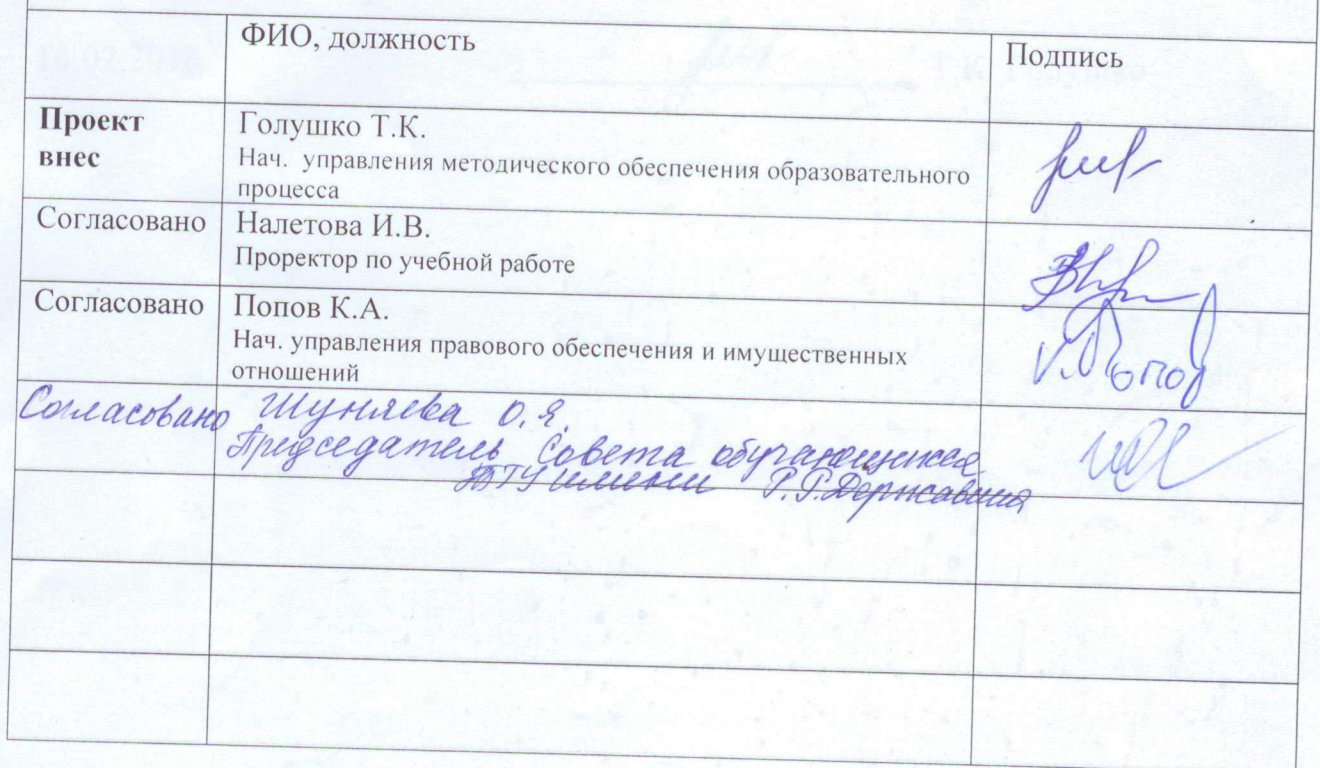 ФИО, должность
Подпись
Проект
внес
Голушко Т.К.
Нач. управления методического обеспечения образовательного
процесса
Согласовано
Налетова И.В.
Проректор по учебной работе
Согласовано
Попов К.А.
Нач. управления правового обеспечения и имущественных
отношений
К.Попов
Согласовано
Шуняева О.Я.
Председатель Совета обучающихся
ТГУ имени Г.Р.Державина